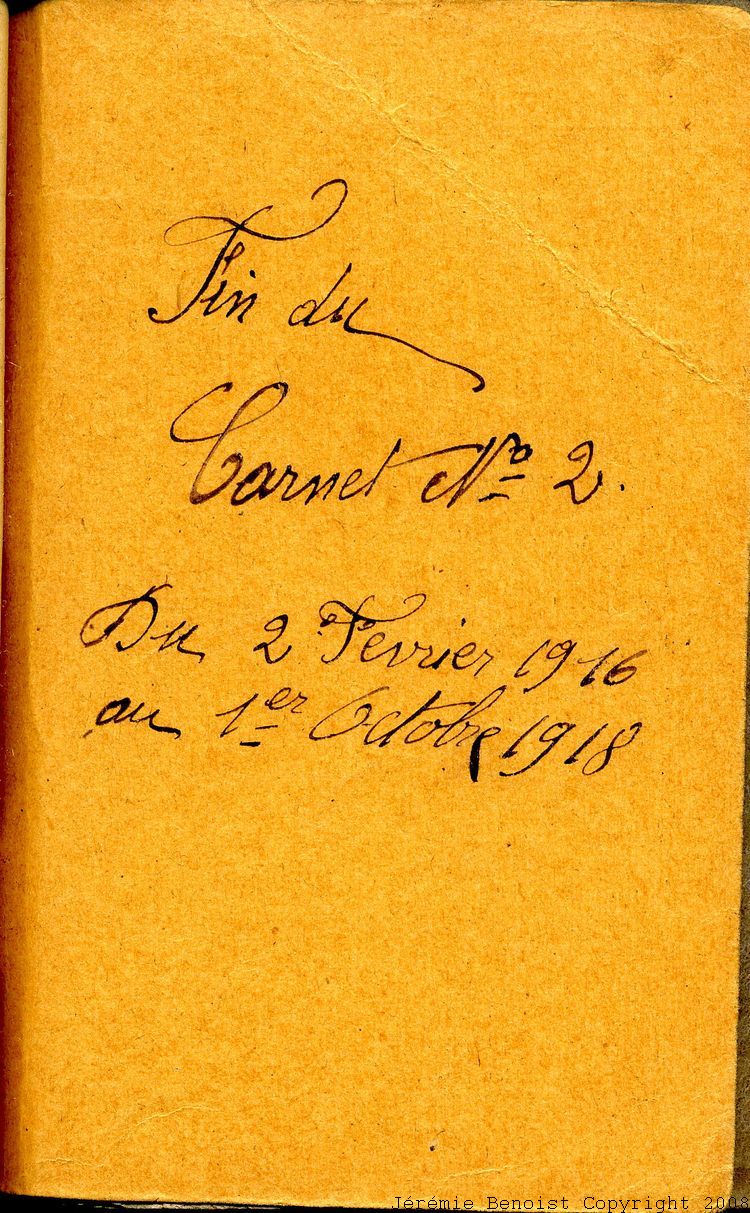 Fin du
Carnet Nº 2.
Du 2 Fevrier 1916
au 1er Octobre 1918
Jérémie Benoist Copyright 2008